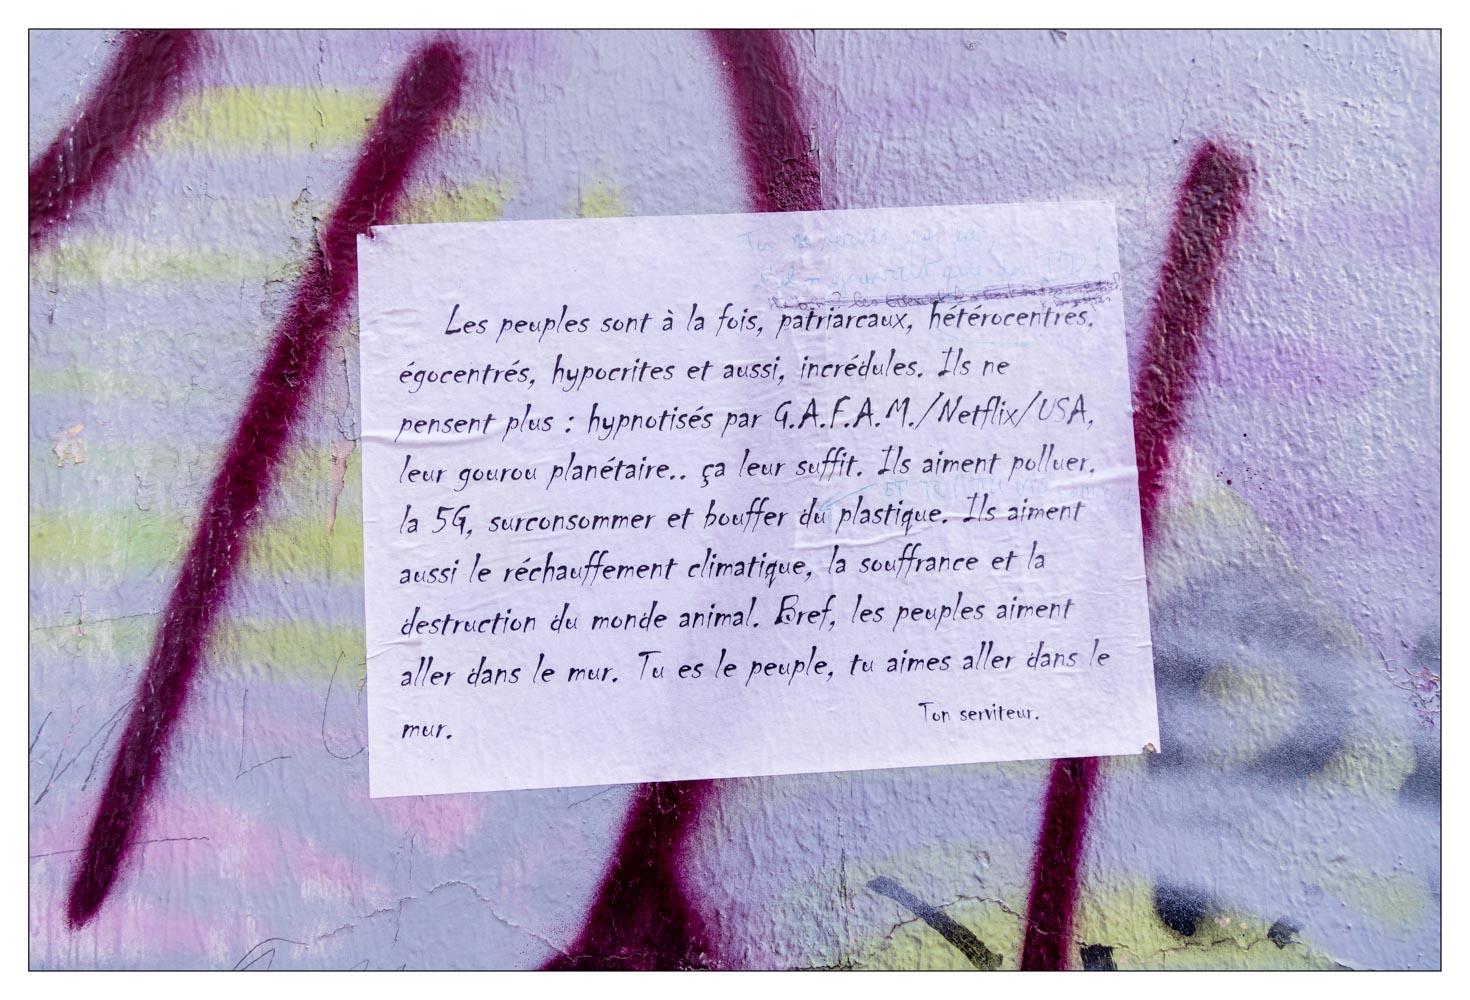 Les peuples sont à la fois, patriarcaux, hétérocentrés.
égocentrés, hypocrites et aussi, incrédules. Ils ne
pensent plus : hypnotisés par G.A.F.A.M./Netflix/USA,
leur gourou planétaire.. ça leur suffit. Ils aiment polluer.
la 5G, surconsommer et bouffer du plastique. Ils aiment
aussi le réchauffement climatique, la souffrance et la
destruction du monde animal. Bref, les peuples aiment
aller dans le mur. Tu es le peuple, tu aimes aller dans le
mur.
Ton serviteur.